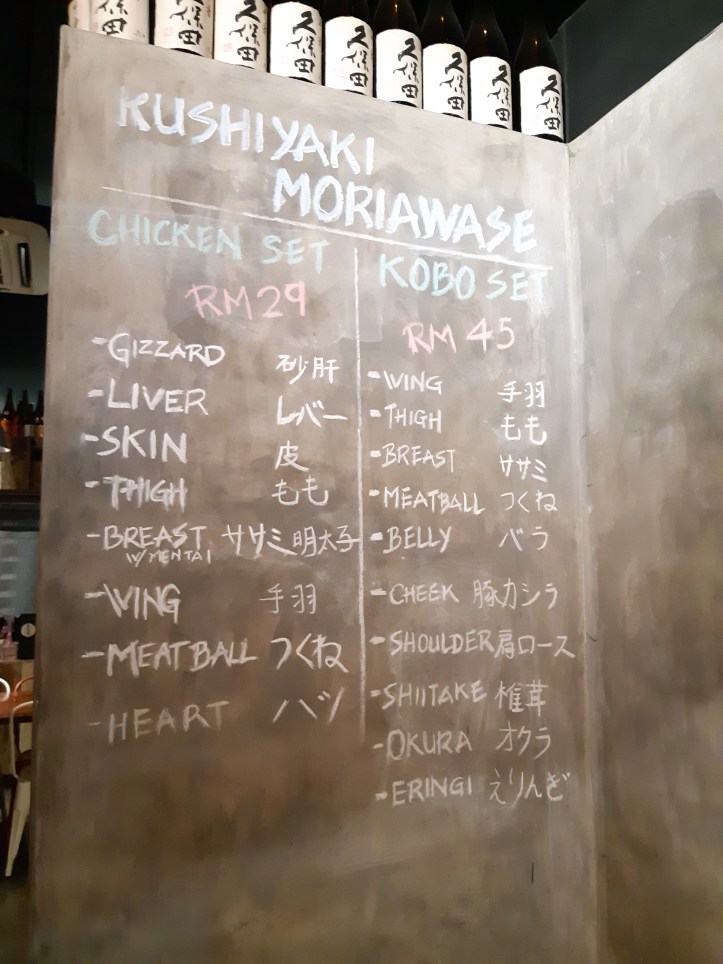 久保田 久保田 久保田 久保田 久保田 久保田 久保田 久保田 久保田
KUSHIYAKI
MORIAWASE
CHICKEN SET
RM29
-GIZZARD 砂肝
-LIVER レバー
-SKIN 皮
-THIGH もも
-BREAST ササミ明太子
W/MENTAI
-WING 手羽
-MEATBALL つくね
-HEART ハツ
KOBO SET
RM 45
-WING 手羽
-THIGH もも
-BREAST ササミ
-MEATBALL つくね
-BELLY バラ
-CHEEK 豚カシラ
-SHOULDER 肩ロース
-SHIITAKE 椎茸
-OKURA オクラ
-ERINGI えりんぎ